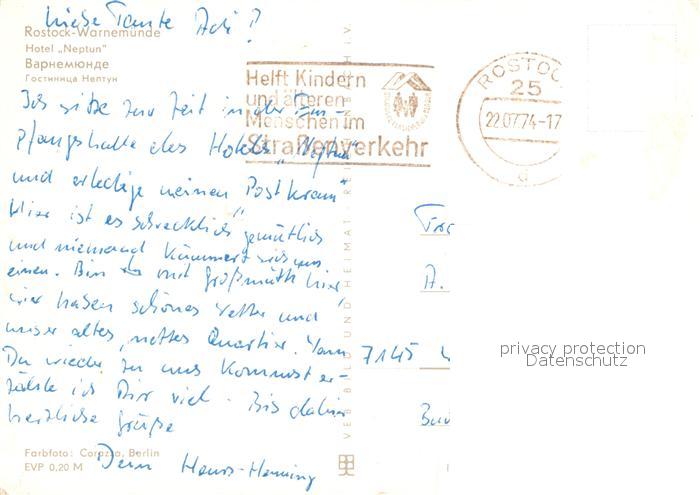 Liebe Tante Adi!
Rostock-Warnemünde
Hotel „Neptun"
Варнемюнде
Гостиница Нептун
Ich sitze zur Zeit in der Em-
pfangshalle des Hotels „Neptun"
und erledige meinen „Postkram"
Hier ist es schrecklich gemütlich
und niemand kümmert sich um
einen. Bin mit Großmutti hier,
wir haben schönes Wetter und
unser altes, nettes Quartier. Wenn
Du wieder zu uns kommst er-
zähle ich Dir viel. Bis dahin
herzliche Grüße
Dein Hans-Henning
Farbfoto: Corazza, Berlin
EVP 0,20 M
VEB BILD UND HEIMAT
Helft Kindern
und älteren
Menschen im
Straßenverkehr
ROSTOC
25
22.07.74-17
d
A.
7145
privacy protection
Datenschutz